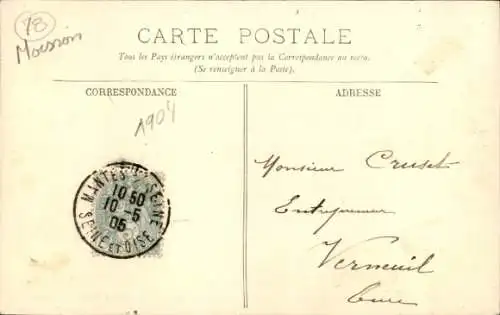 78
Moisson
CARTE POSTALE
Tous les Pays étrangers n'acceptent pas la Correspondance au recto.
(Se renseigner à la Poste).
CORRESPONDANCE
ADRESSE
1904
MANTES S SEINE
10 50
10 - 5
05
SEINE ET OISE
Monsieur Cruset
Entrepreneur
Verneuil
Eure